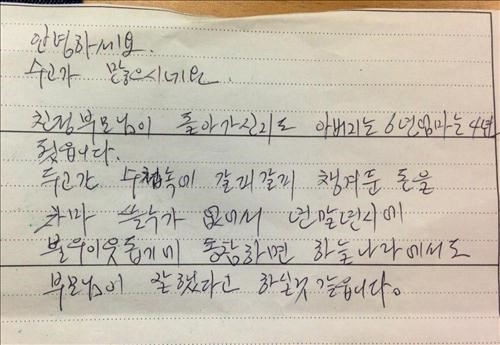 안녕하세요.
수고가 많으시네요.
친정부모님이 돌아가신지도 아버지는 6년엄마는 4년
됬읍니다.
두고간 수첩속에 갈피갈피 챙겨둔 돈을
차마 쓸수가 없어서 년말년시에
불우이웃돕기에 동참하면 하늘나라에서도
부모님이 잘했다고 하실것 같읍니다.